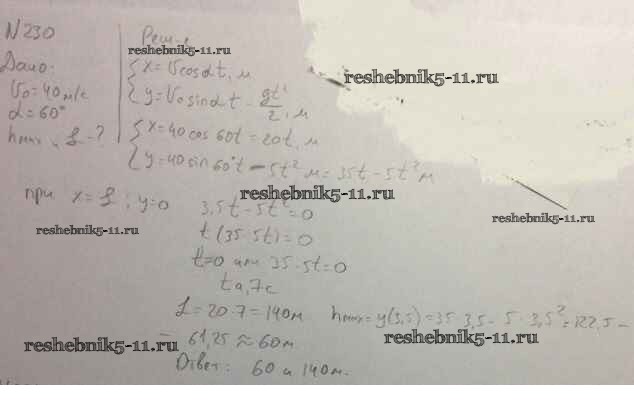 N 230
Дано:
V₀ = 40 м/с
α = 60°
hmax, L - ?
Реш-е
reshebnik5-11.ru
{ x = Vcosαt, м
reshebnik5-11.ru
{ y = V₀ sinαt - gt²/2, м
{ x = 40 cos 60t = 20t, м
{ y = 40 sin 60°t - 5t² м = 35t - 5t² м
при x = L; y = 0
reshebnik5-11.ru
3,5t - 5t² = 0
reshebnik5-11.ru
reshebnik5-11.ru
t (35 - 5t) = 0
t = 0 или 35 - 5t = 0
7c
L = 20 · 7 = 140м hmax = y(3,5) = 35 · 3,5 - 5 · 3,5² = 122,5 -
- 61,25 ≈ 60м
reshebnik5-11.ru
reshebnik5-11.ru
Ответ: 60 и 140м.